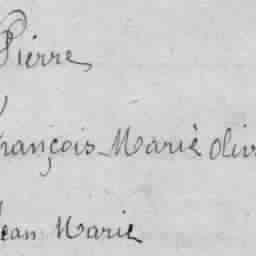 Pierre
François Marie Oliv
Jean Marie